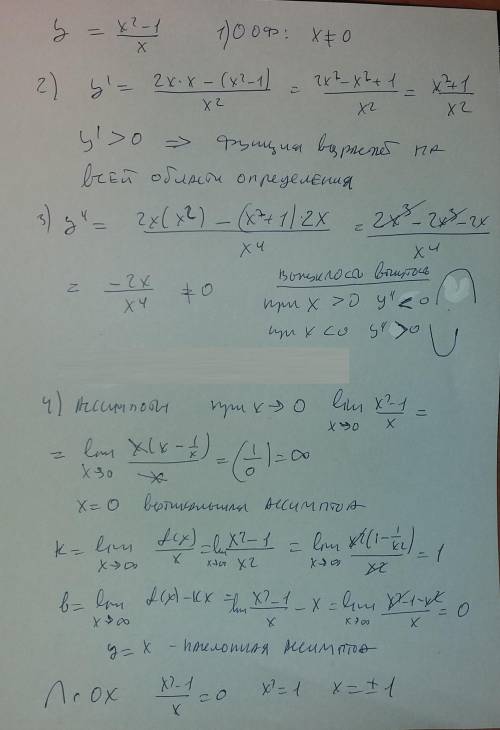 y = x²-1/x 1) ООФ: x≠0
2) y' = 2x·x-(x²-1)/x² = 2x²-x²+1/x² = x²+1/x²
y'>0 ⇒ функция возрастает на
всей области определения
3) y'' = 2x(x²)-(x²+1)·2x/x⁴ = 2x³-2x³-2x/x⁴
= -2x/x⁴ ≠0
при x>0 y''<0
при x<0 y''>0
4) Ассимптоты при x→0 lim x→0 x²-1/x =
= lim x→0 x(x-1/x)/x = (1/0) = ∞
x=0 вертикальная ассимптота
k = lim x→∞ f(x)/x = lim x→∞ x²-1/x² = lim x→∞ x²(1-1/x²)/x² = 1
b = lim x→∞ f(x)-kx = lim x²-1/x - x = lim x→∞ x²-1-x²/x = 0
y = x - наклонная ассимптота
ОХ x²-1/x = 0 x²=1 x=±1